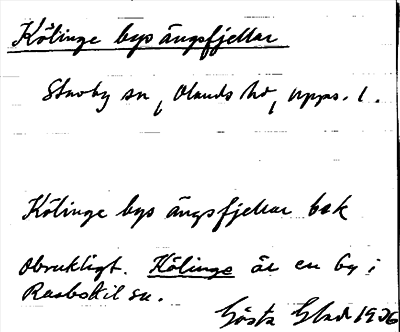 Kölinge bys ängsfjellar
Stavby sn, Olands hd, Upps. l.
Kölinge bys ängsfjellar bek
obrukligt. Kölinge är en by i
Rasbokil sn.
Gösta Glad 1926